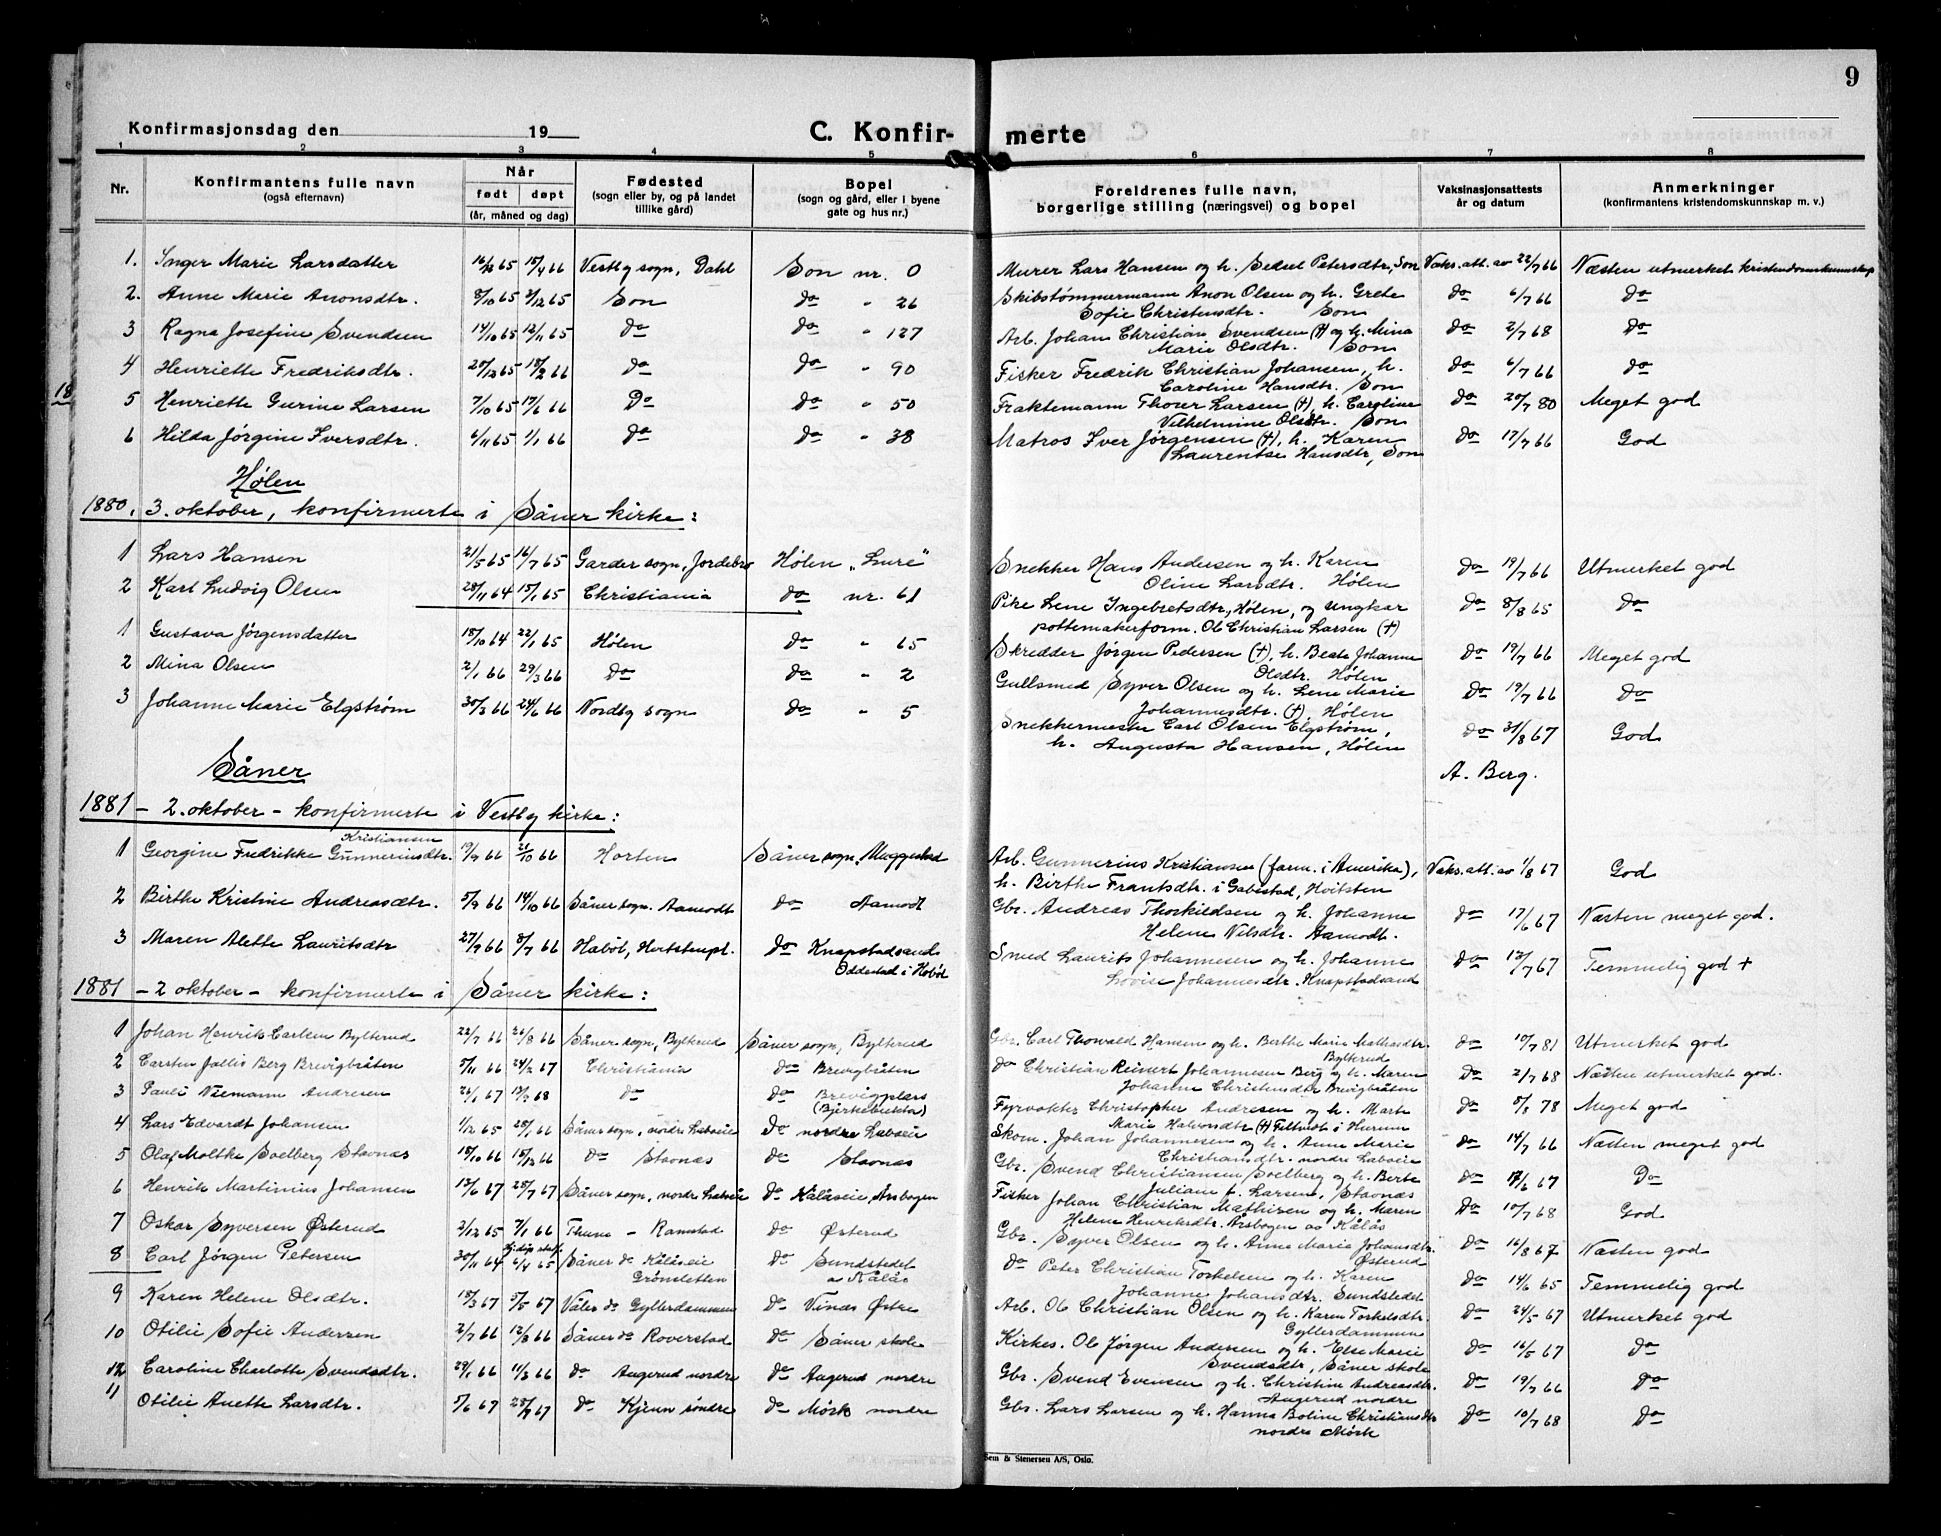 9
Konfirmasjonsdag den 19
C. Konfir- merte
1 2 3 4 5 6 7 8
Nr. Konfirmantens fulle navn (også efternavn) Når født døpt (år, måned og dag) Fødested (sogn eller by, og på landet tillike gård) Bopel (sogn og gård, eller i byene gate og hus nr.) Foreldrenes fulle navn, borgerlige stilling (næringsvei) og bopel Vaksinasjonsattests år og datum Anmerkninger (konfirmantens kristendomskunnskap m. v.)
1. Inger Marie Larsdatter 65 15/4 66 Vestby sogn, Dahl Son nr. 0 Murer Lars Hansen og h. Petersdtr, Son Vaks.att. av 22/7 66 Næsten utmerket kristendomskunnskap
2. Anne Marie Anonsdtr. 8/10 65 3/12 65 Son do - 26 Skibstømmermann Anon Olsen og h. Grete Sofie Christensdtr. Son do 6/7 66 do
3 Ragna Josefine Svendsen 14/10 65 12/11 65 do do - 127 Arb. Johan Christian Svendsen (†) og h. Mina Marie Olsdtr. Son do 2/7 68 do
4 Henriette Fredriksdtr. 20/12 65 18/2 66 do do - 90 Fisker Fredrik Christian Johansen, h. Caroline Hansdtr. Son do 6/7 66 do
5 Henriette Gurine Larsen 7/10 65 17/6 66 Do do - 50 Fraktemann Thorer Larsen (†), h. Caroline Vilhelmine Olsdtr. Son do 20/7 80 Meget god
6 Hilda Jørgine Iversdtr. 6/11 65 1/1 66 do do - 38 Matros Iver Jørgensen (†), h. Karen Laurentse Hansdtr, Son do 17/7 66 God
Hølen
1880. 3. oktober, konfirmerte i Såner kirke:
1 Lars Hansen 21/5 65 16/7 65 Garder sogn, Jordebro Hølen "Lure" Snekker Hans Andersen og h. Karen Oline Larsdtr. Hølen do 19/7 66 Utmerket god
2 Karl Ludvig Olsen 28/11 64 15/1 65 Christiania do nr. 61 Pike Lene Ingebretsdtr, Hølen, og ungkar pottemakerform. Ole Christian Larsen (†) do 8/8 65 do
1 Gustava Jørgensdatter 18/10 64 22/1 65 Hølen do - 65 Skredder Jørgen Pedersen (†), h. Beate Johanne Olsdtr. Hølen do 19/7 66 Meget god
2 Mina Olsen 2/1 66 29/3 66 do do - 2 Gullsmed Syver Olsen og h. Lene Marie Johannesdtr. (†), Hølen do 19/7 66 do
3 Johanne Marie Elgstrøm 30/3 66 24/6 66 Nordby sogn do - 5 Snekkermester Carl Olsen Elgstrøm, h. Augusta Hansen, Hølen do 31/8 67 God
Såner A. Berg.
1881 - 2. oktober - konfirmerte i Vestby kirke:
1 Georgine Fredrikke Kristiansen Gunneriusdtr. 19/9 66 21/10 66 Horten Såner sogn, Moggestad Arb. Gunnerius Kristiansen (farm. i Amerika), h. Birthe Frantsdtr. i Gabestad, Hvitsten Vaks.att. av 1/8 67 God
2 Birthe Kristine Andreasdtr. 5/9 66 14/10 66 Såner sogn. Aamodt do Aamodt Gbr. Andreas Thorkildsen og h. Johanne Helene Nilsdtr. Aamodt. do 17/6 67 Næsten meget god.
3 Maren Alette Lauritsdtr 27/7 66 8/7 66 Habøl, do Knapstadsand Oddestad i Hobøl Smed Laurits Johannesen og h. Johanne Lovise Johannesdtr. Knapstadsand do 12/7 67 Temmelig god +
1881 - 2 oktober - konfirmerte i Såner kirke:
1 Johan Henrik Carlsen Bylterud 22/7 66 26/8 66 Såner sogn, Bylterud Såner sogn, Bylterud Gbr. Carl Thorvald Hansen og h. Berthe Marie Mathadtr. Bylterud do 10/7 81 Utmerket god
2 Carsten Berg Brevigbråten 5/11 66 24/2 67 Christiania do Brevigbråten do Christian Reinert Johannesen Berg og h. Maren Johanne Christensdtr Brevigbråten do 2/7 68 Næsten utmerket god.
3 Pauli Niemann Andresen 26/1 67 68 do do Brevigplass (Bjerkebukta) Fyrvokter Christopher Andresen og h. Marte Marie Halvorsdtr (†) Filtvedt i Hurum do 5/8 78 Meget god
4 Lars Edvardt Johansen 1/12 65 28/1 66 Såner sogn, nordre Labseie do nordre Labseie Skom. Johan Johannesen og h. Anne Marie Christiansdtr. nordre Labseie do 14/7 66 Næsten meget god
5 Olaf Moltke Soelberg Stavnæs 18/10 66 66 do Stavnæs do Stavnæs Gbr. Svend Christiansen Soelberg og h. Berte Juliane f. Larsen, Stavnæs do 17/6 67 Do
6 Henrik Martinius Johansen 13/6 67 28/7 67 Såner sogn, nordre Labseie do Kålåseie, Årsbogen Fisker Johan Christian Mathisen og h. Maren Helene Henriksdtr. Årsbogen av Kålås Do 10/7 68 God
7 Oskar Syversen Østerud 2/12 65 7/1 66 Thune - Ramstad do Østerud Gbr. Syver Olsen og h. Anne Marie Johansdtr. Østerud do 16/8 67 Næsten god
8 Carl Jørgen Petersen 30/11 64 6/4 65 Såner do Kålåseie Grønsletten do Sundstedet av Kålås do Peter Christian Torkelsen og h. Karen Johanne Johansdtr. Sundstedet do 14/6 65 Temmelig god
9 Karen Helene Olsdtr. 18/3 67 5/5 67 Våler do Gylterdammen do Vinæs Østre Arb. Ole Christian Olsen og h. Karen Torkelsdtr. Gylterdammen do 24/5 67 Utmerket god
10 Otilie Sofie Andersen 2/7 66 12/8 66 Såner do Roverstad do Såner skole Kirkes. Ole Jørgen Andersen og h. Else Marie Svendsdtr, Såner skole do 16/5 67 do
12 Caroline Charlotte Svendsdtr. 29/1 66 11/3 66 do Augerud nordre do Augerud nordre Gbr. Svend Evensen og h. Christine Andreasdtr. Augerud nordre do 19/7 66 do
11 Otilie Anette Larsdtr. 5/6 67 28/7 67 do Kjenn søndre do Mørk nordre Gbr. Lars Larsen og h. Hanna Boline Christiansdtr nordre Mørk do 10/7 68 do
Sem & Stenersen A/S, Oslo.